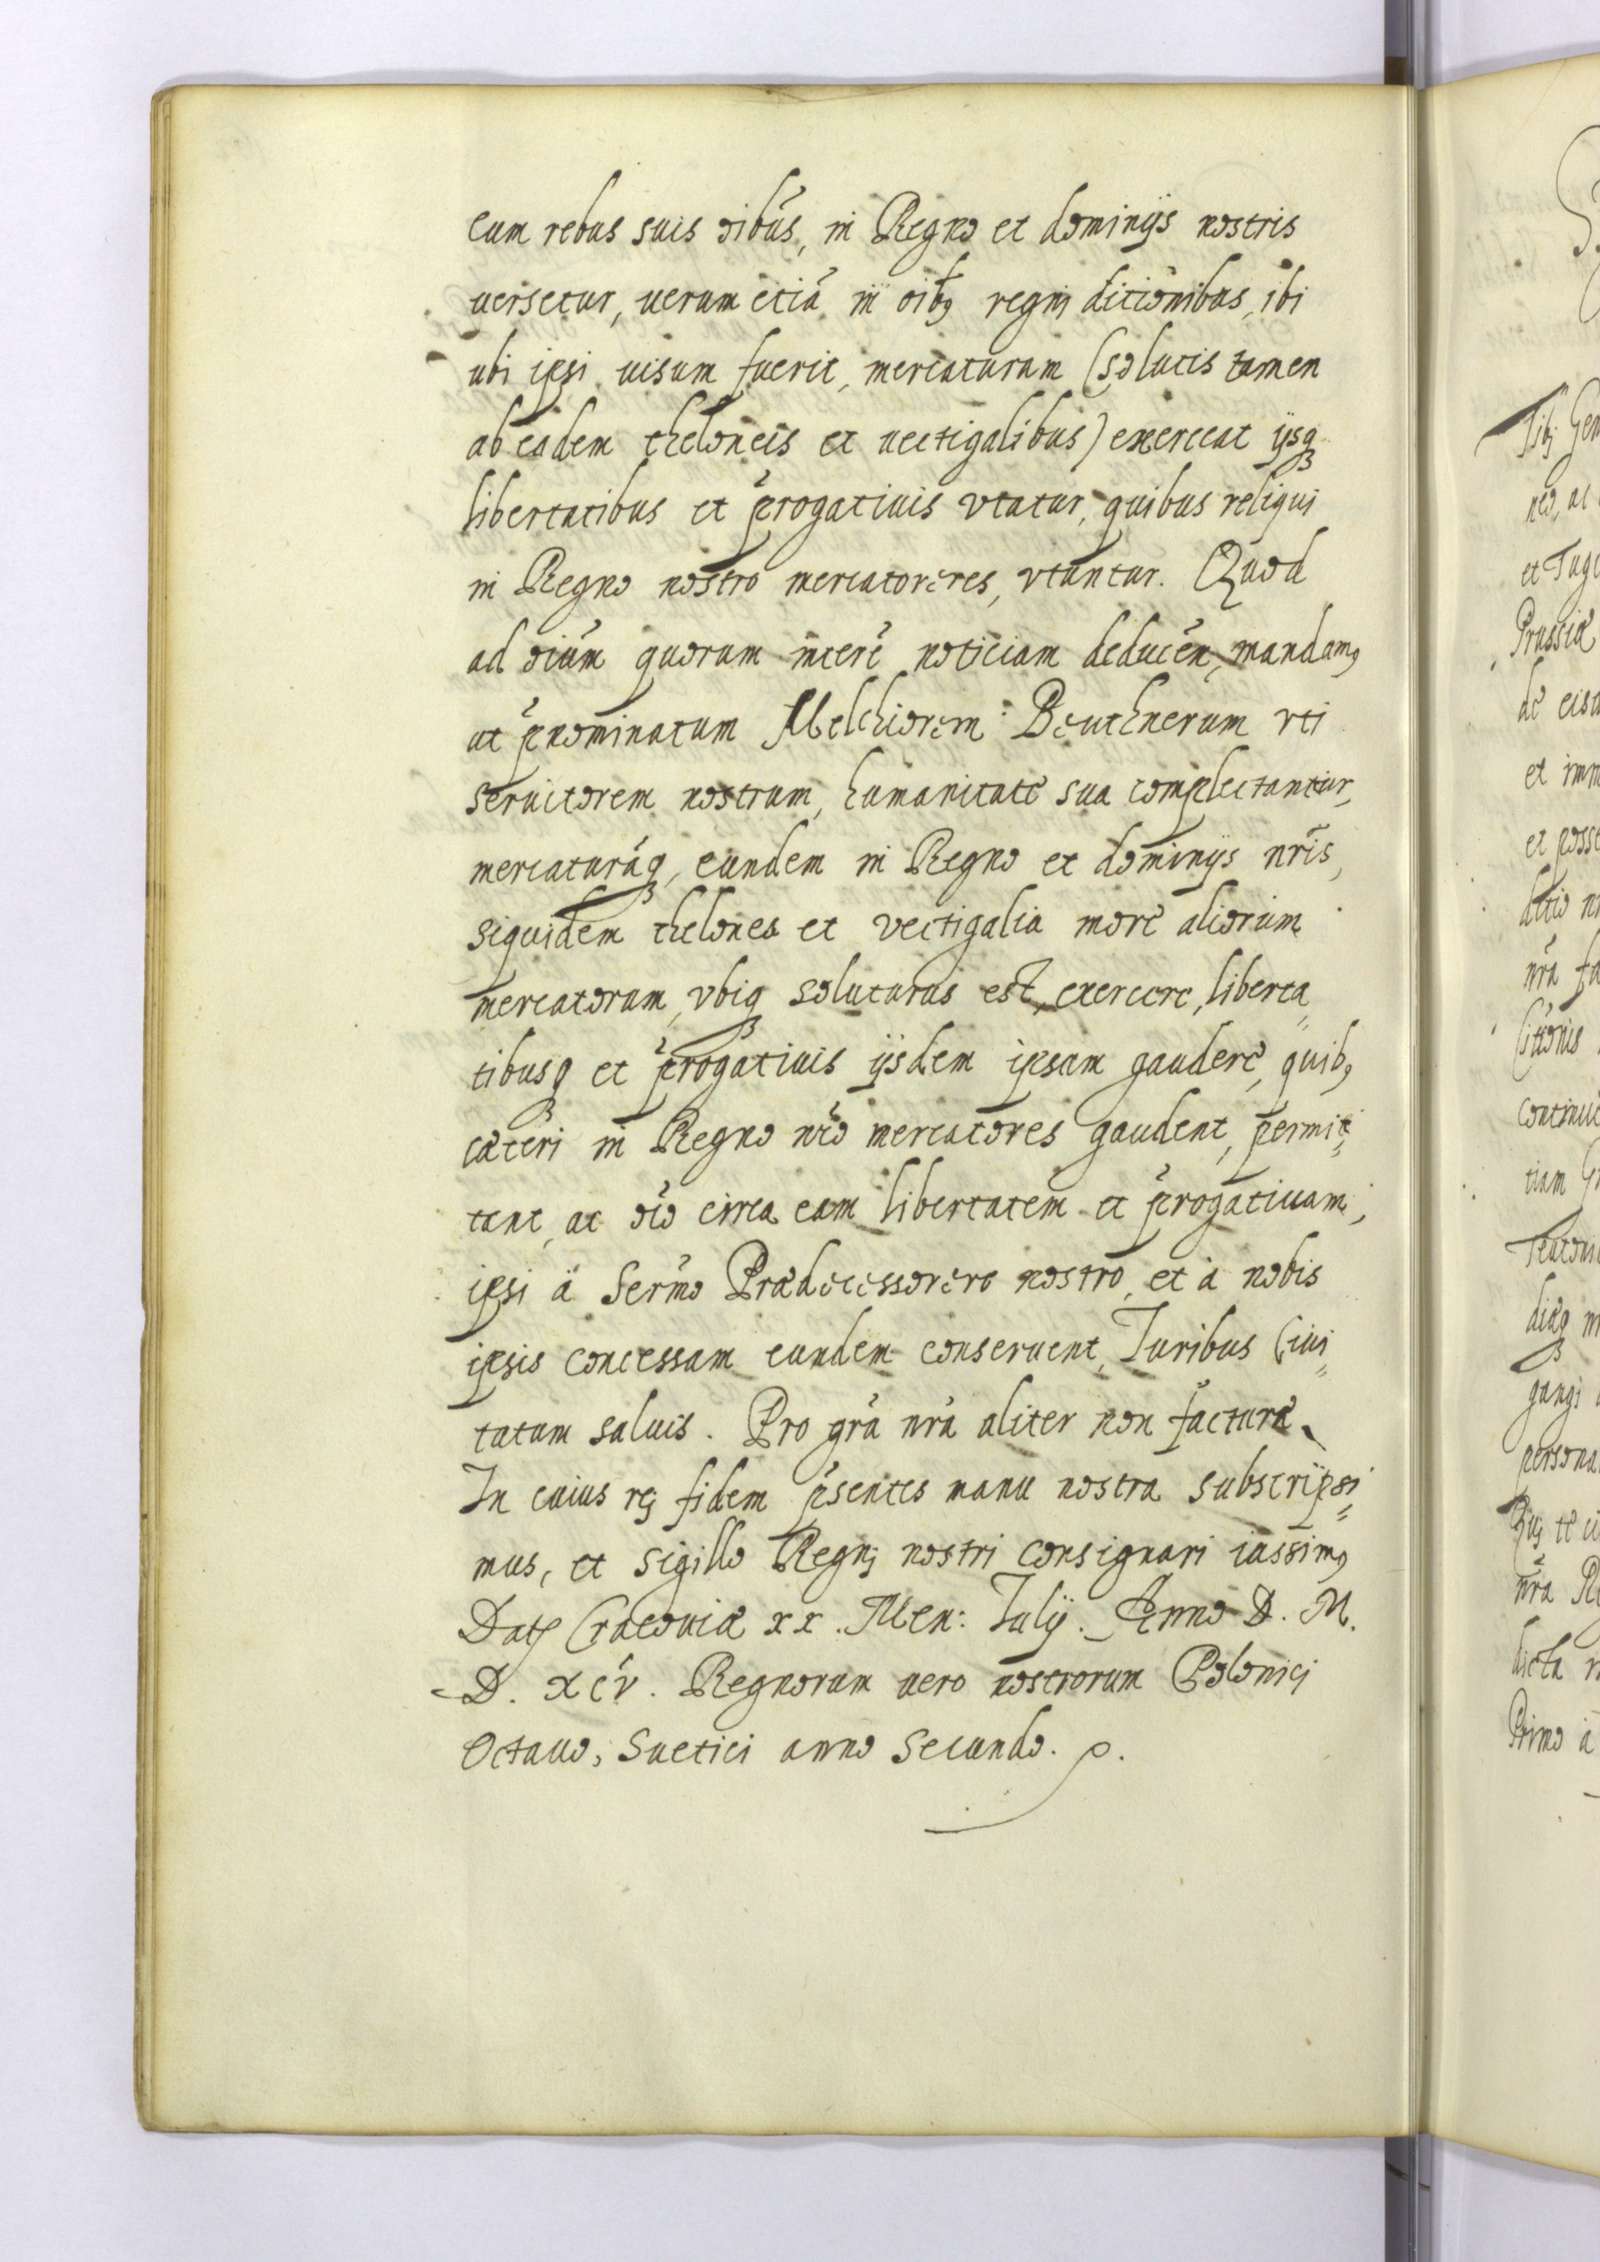 cum rebus suis oibūs, in Regno et dominijs nostris
uersetur, uerum etiā in oib9 regnj ditionibus, ibi
ubi ipsi uisum fuerit, mercaturam (solutis tamen
ab eadem theloneis et uectigalibus) exerceat ijsq3
libertatibus et p̄rogatiuis vtatur, quibus reliqui
in Regno nostro mercatores, vtuntur. Quod
ad oiūm quorum intererit noticiam deducen, mandam9
ut p̄nominatum Melchiorem Beuthnerum vti
seruitorem nostrum, humanitate sua complectantur,
mercaturāq3, eundem in Regno et dominijs nr̄is,
siquidem thelonea et vectigalia more aliorum
mercatorum, vbiq3 soluturus est, exercere, liberta„
tibusq3 et p̄rogatiuis ijsdem ipsum gaudere, quib9
cæteri in Regno nr̄o mercatores gaudent, permit„
tant, ac oīo circa eam libertatem et p̄rogatiuam,
ipsi à Sermo Prædecessore nostro, et à nobis
ipsis concessam eundem conseruent, Iuribus Ciui„
tatum saluis. Pro gr̄a nr̄a aliter non facturi.
In cuius rej fidem p̄sentes manu nostra subscripsi„
mus, et sigillo Regnj nostri consignari iussim9
Dat Cracouiæ xx. Men: Iulij. Anno D. M.
D. xcv. Regnorum uero nostrorum Polonici
Octauo, Suetici anno secundo.